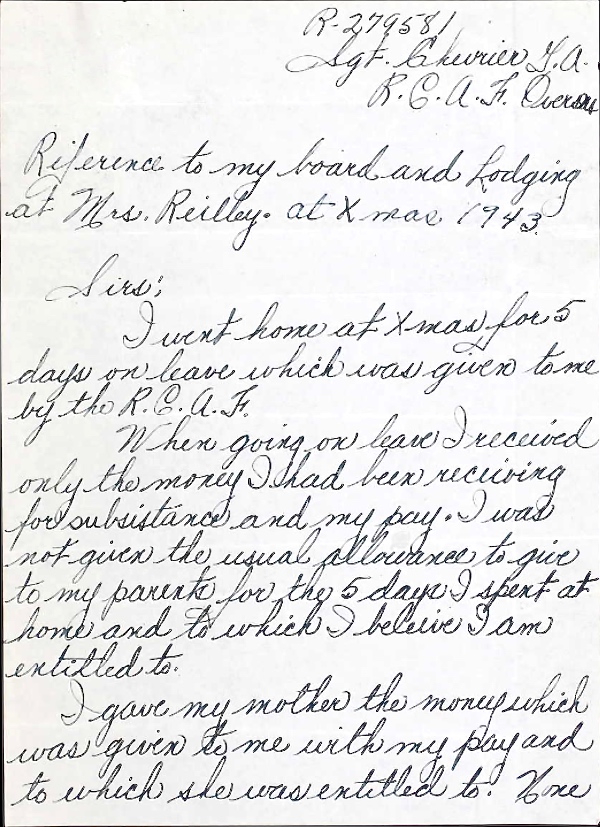 R-279581
Sgt. Chevrier T.A.
R.C.A.F. Overseas
Riference to my board and Lodging
at Mrs. Reilley. at Xmas 1943.
Sirs;
I went home at Xmas for 5
days on leave which was given to me
by the R.C.A.F.
When going on leave I received
only the money I had been receiving
for subsistance and my pay. I was
not given the usual allowance to give
to my parents for the 5 days I spent at
home and to which I beleive I am
entitled to.
I gave my mother the money which
was given to me with my pay and
to which she was entitled to. None